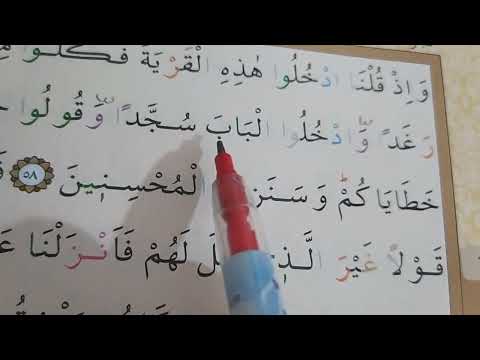 وَاِذْ قُلْنَا ادْخُلُوا هٰذِهِ الْقَرْيَةَ فَكُلُوا
رَغَدًا وَّادْخُلُوا الْبَابَ سُجَّدًا وَّقُولُوا
خَطَايَاكُمْ وَسَنَز۪ الْمُحْسِن۪ينَ ٥٨
قَوْلًا غَيْرَ الَّذ۪ لَهُمْ فَاَنْزَلْنَا